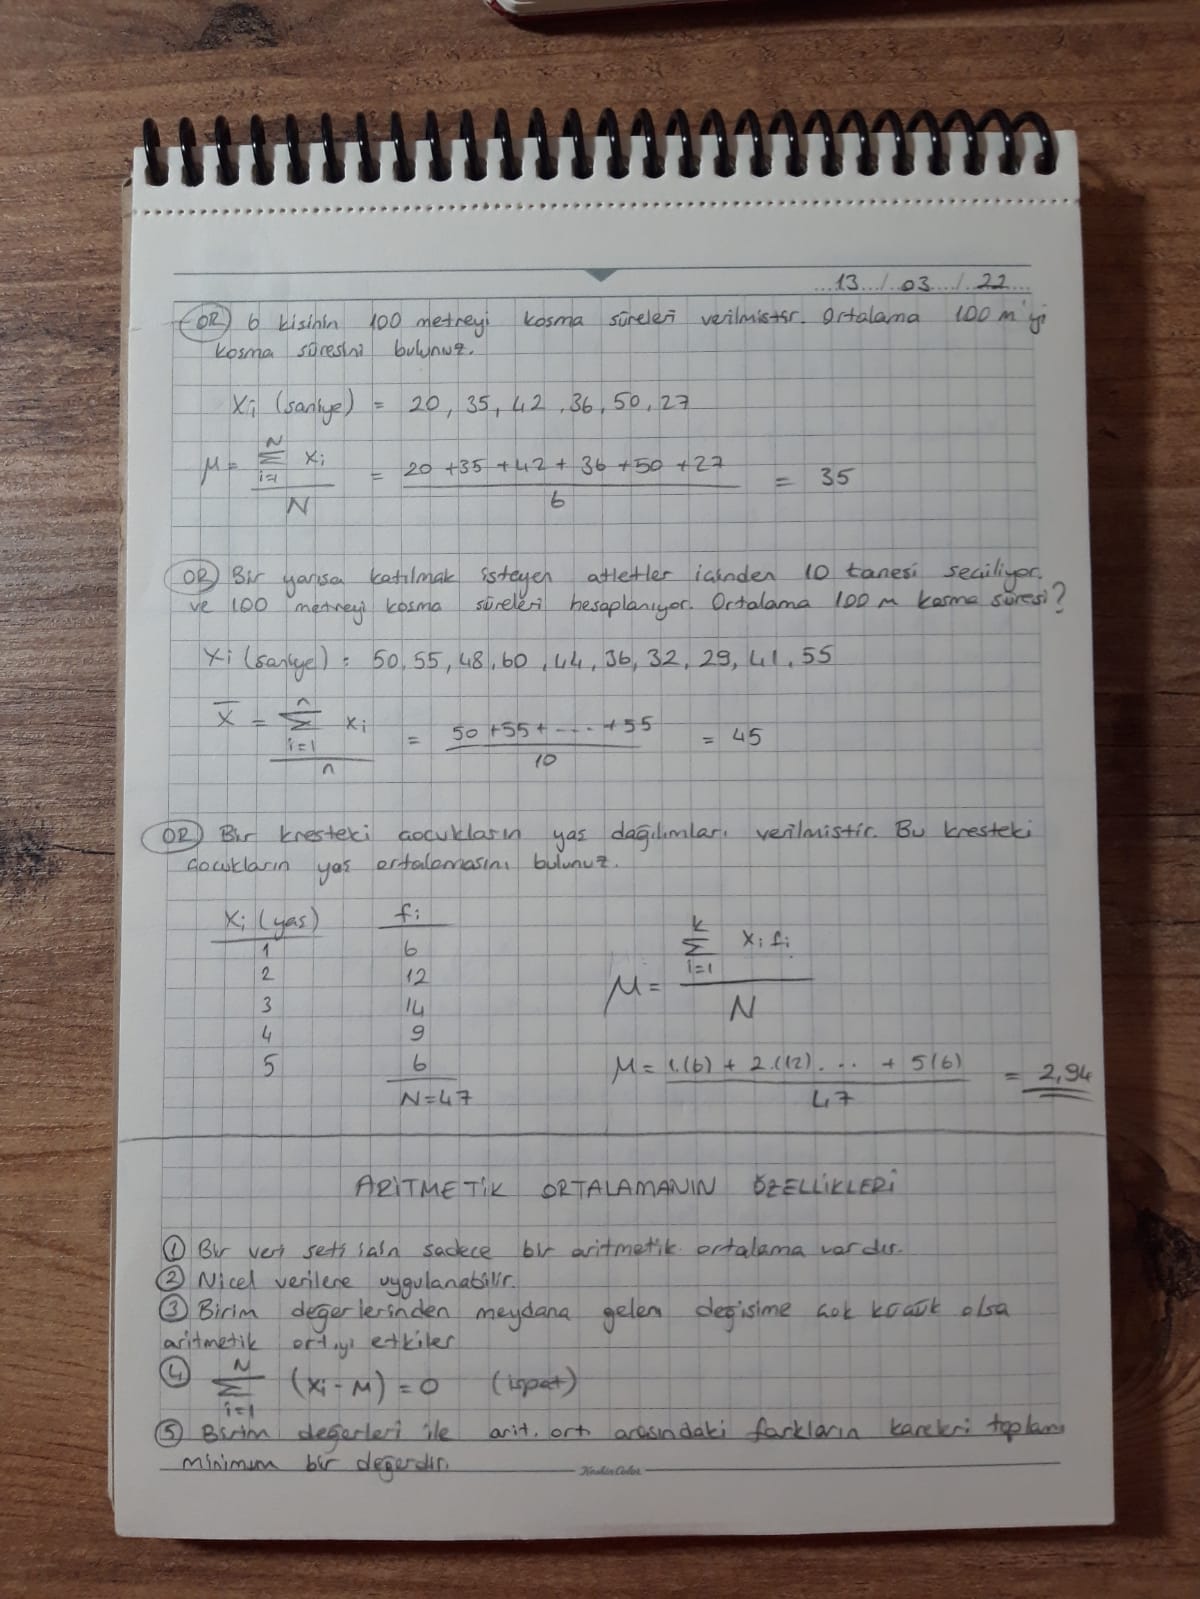 13 / 03 / 22
ÖR) 6 kişinin 100 metreyi koşma süreleri verilmiştir. Ortalama 100 m'yi
koşma süresini bulunuz.
Xi (saniye) = 20, 35, 42, 36, 50, 27
μ = Σ(i=1, N) Xi / N = (20 +35 +42 + 36 +50 +27) / 6 = 35
ÖR) Bir yarışa katılmak isteyen atletler içinden 10 tanesi seçiliyor.
ve 100 metreyi koşma süreleri hesaplanıyor. Ortalama 100 m koşma süresi?
Xi (saniye) : 50, 55, 48, 60, 44, 36, 32, 29, 41, 55
X̄ = Σ(i=1, n) Xi / n = (50 +55+ ---- +55) / 10 = 45
ÖR) Bir kreşteki çocukların yaş dağılımları verilmiştir. Bu kreşteki
çocukların yaş ortalamasını bulunuz.
Xi (yaş) fi
1 6
2 12
3 14
4 9
5 6
N=47
μ = Σ(i=1, k) Xi fi / N
μ = (1.(6) + 2.(12). .. + 5(6)) / 47 = 2,94
ARİTMETİK ORTALAMANIN ÖZELLİKLERİ
① Bir veri seti için sadece bir aritmetik ortalama vardır.
② Nicel verilere uygulanabilir.
③ Birim değerlerinden meydana gelen değişime çok küçük olsa
aritmetik ort.yı etkiler
④ Σ(i=1, N) (Xi - μ) = 0 (ispat)
⑤ Birim değerleri ile arit. ort. arasındaki farkların kareleri toplamı
minimum bir değerdir.